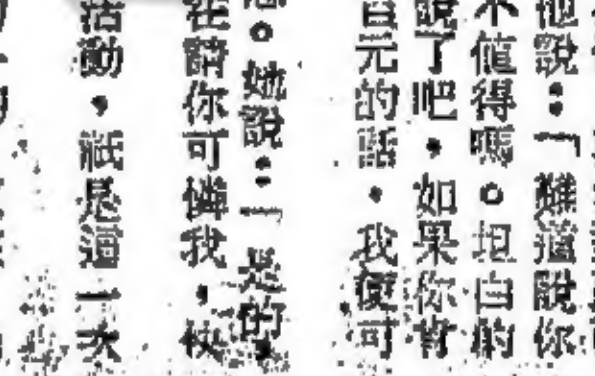 他說：「難道說你
不值得嗎。坦白的
說了吧，如果你肯
百元的話，我便可
。她說：「是的，
在請你可憐我，快
活動，祇是這一次